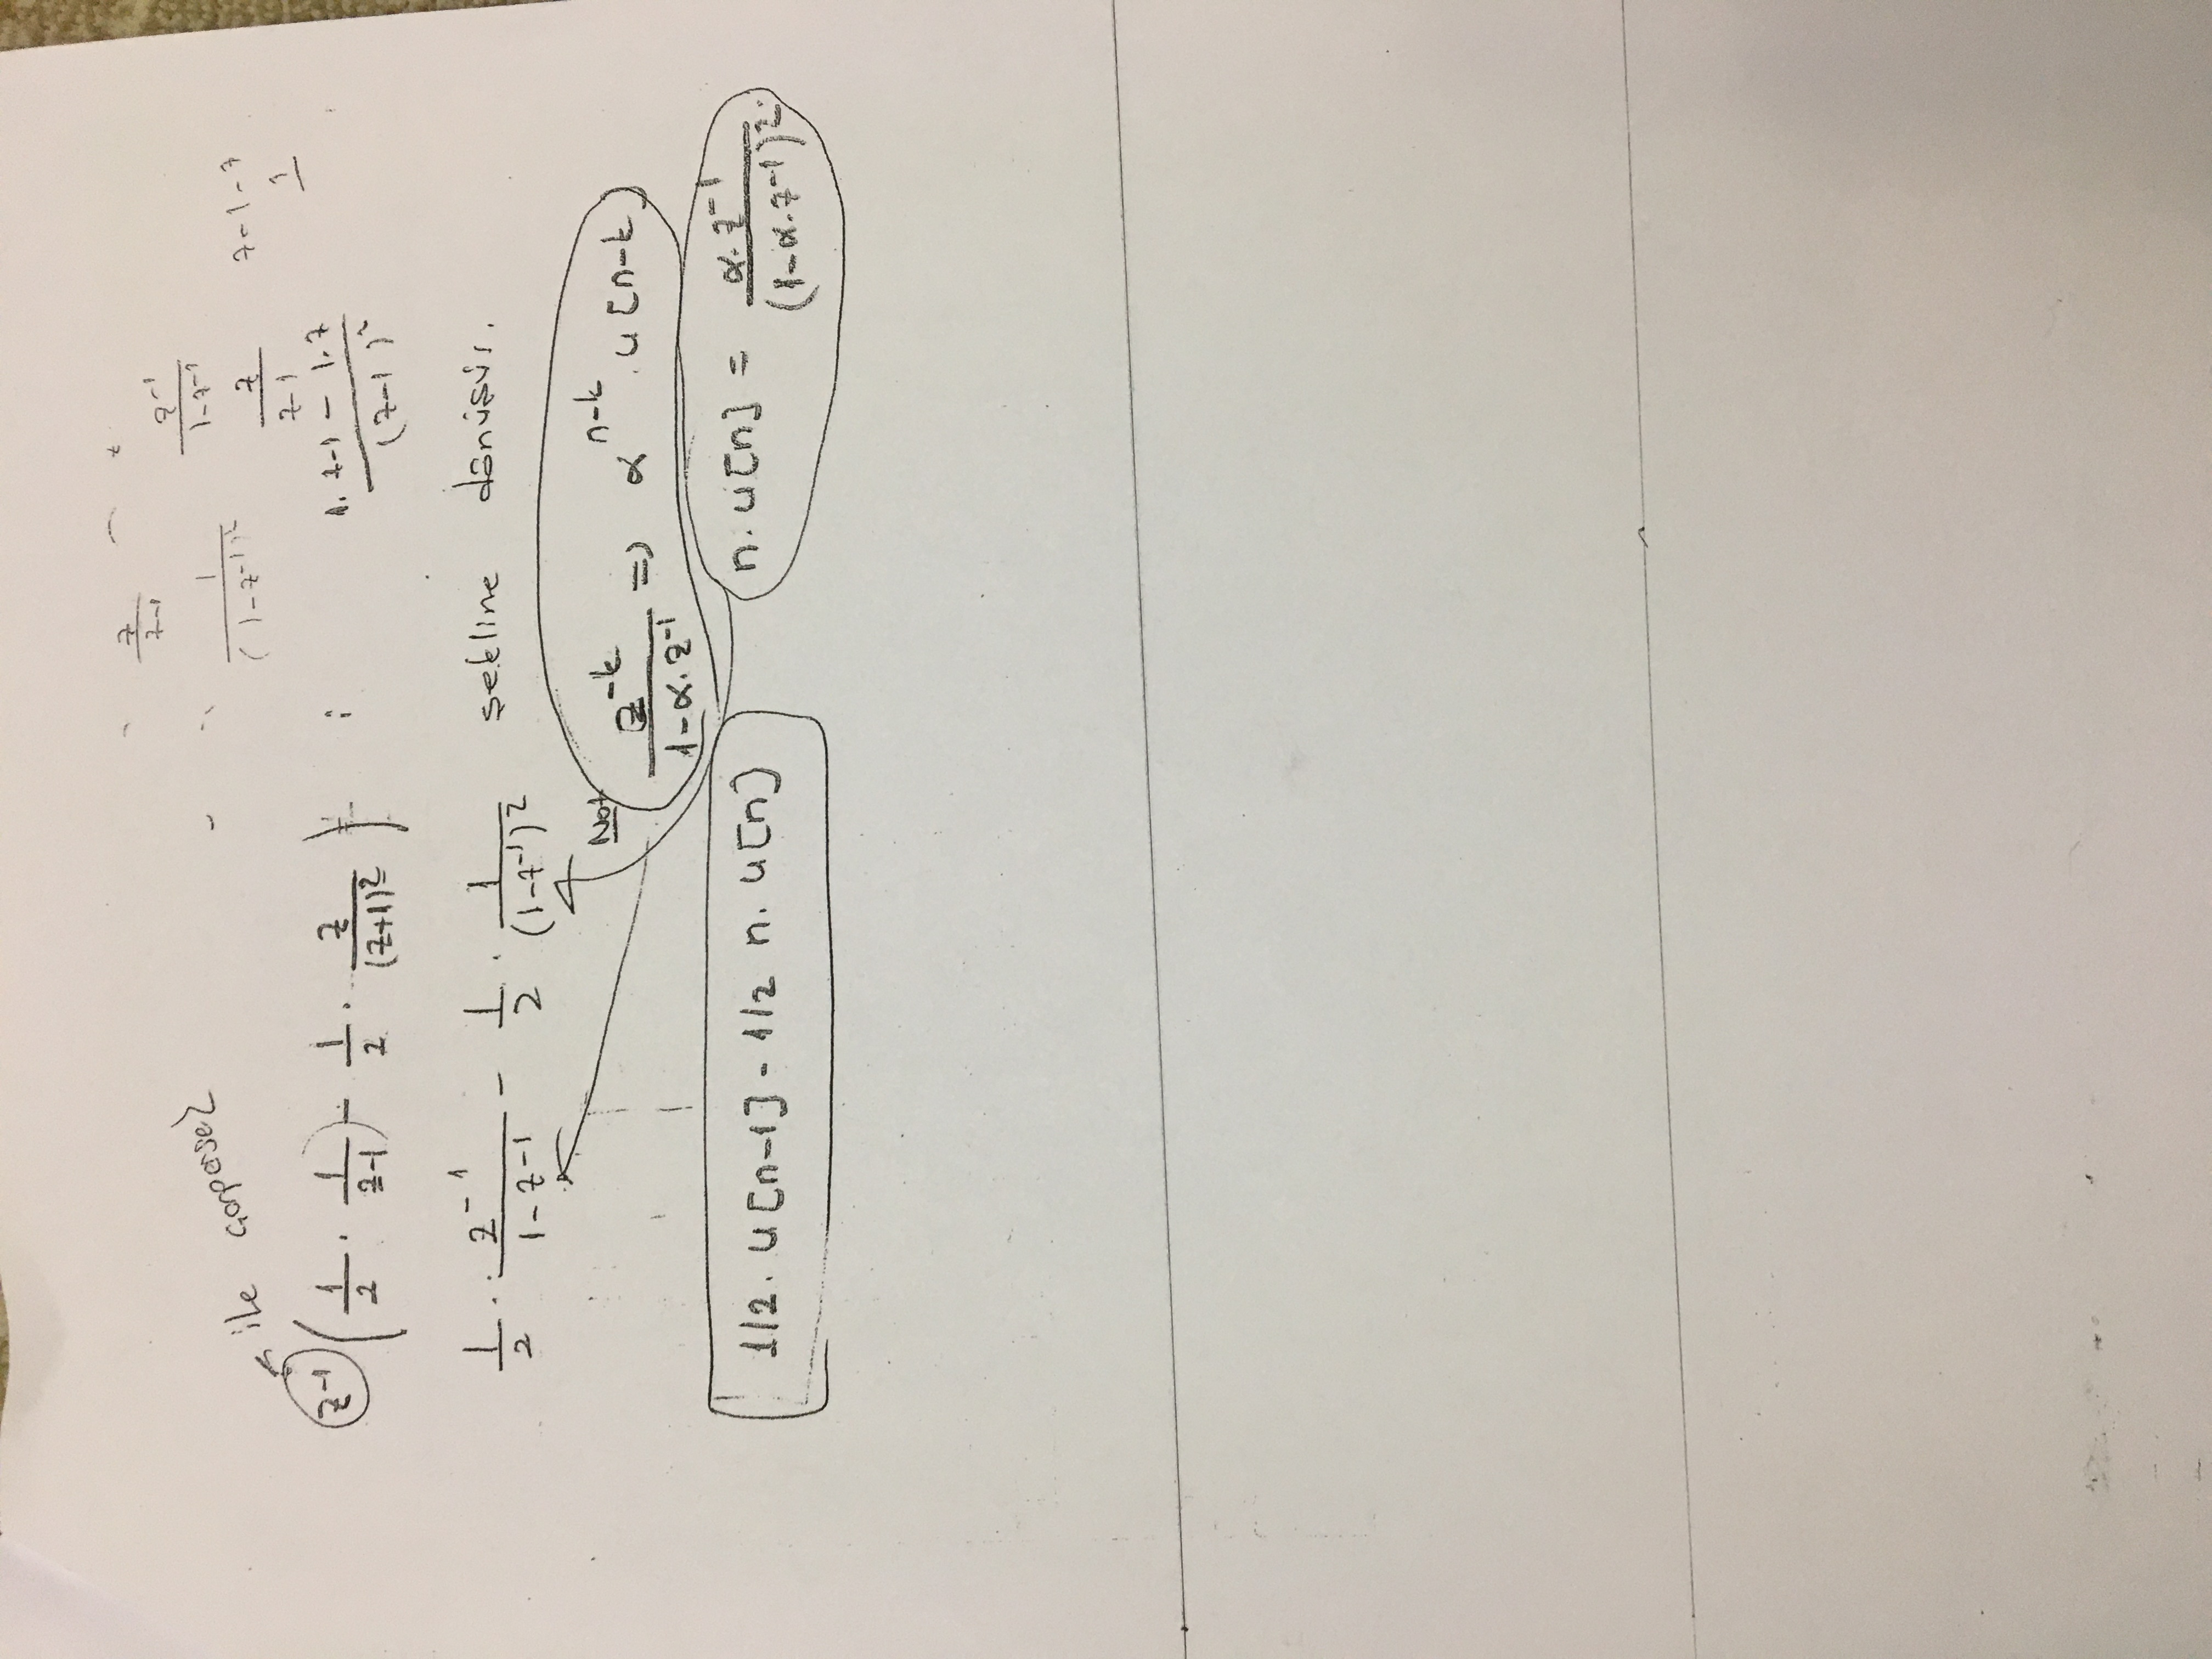 z/z-1
z^-1/1-z^-1
1/(1-z^-1)^2
z/z-1   z-1-z
1
1. z-1 - 1.z/(z-1)^2
ile çarparsak
z^-1 (1/2 . 1/z-1) - 1/2 . z/(z+1)^2) = :
1/2 . z^-1/1-z^-1 - 1/2 . 1/(1-z^-1)^2 şekline dönüşür.
Not z^-k/1-α.z^-1 => α^n-k . u[n-k]
1/2. u[n-1] - 1/2 n. u[n]
n. u[n] = α.z^-1/(1-α.z^-1)^2.